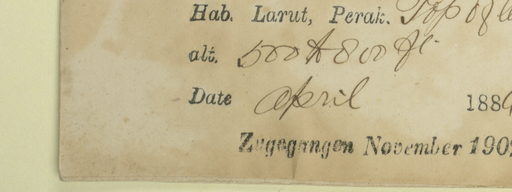 Hab. Larut, Perak. Top of
alt. 500 to 800 ft.
Date April 188
Zugegangen November 190